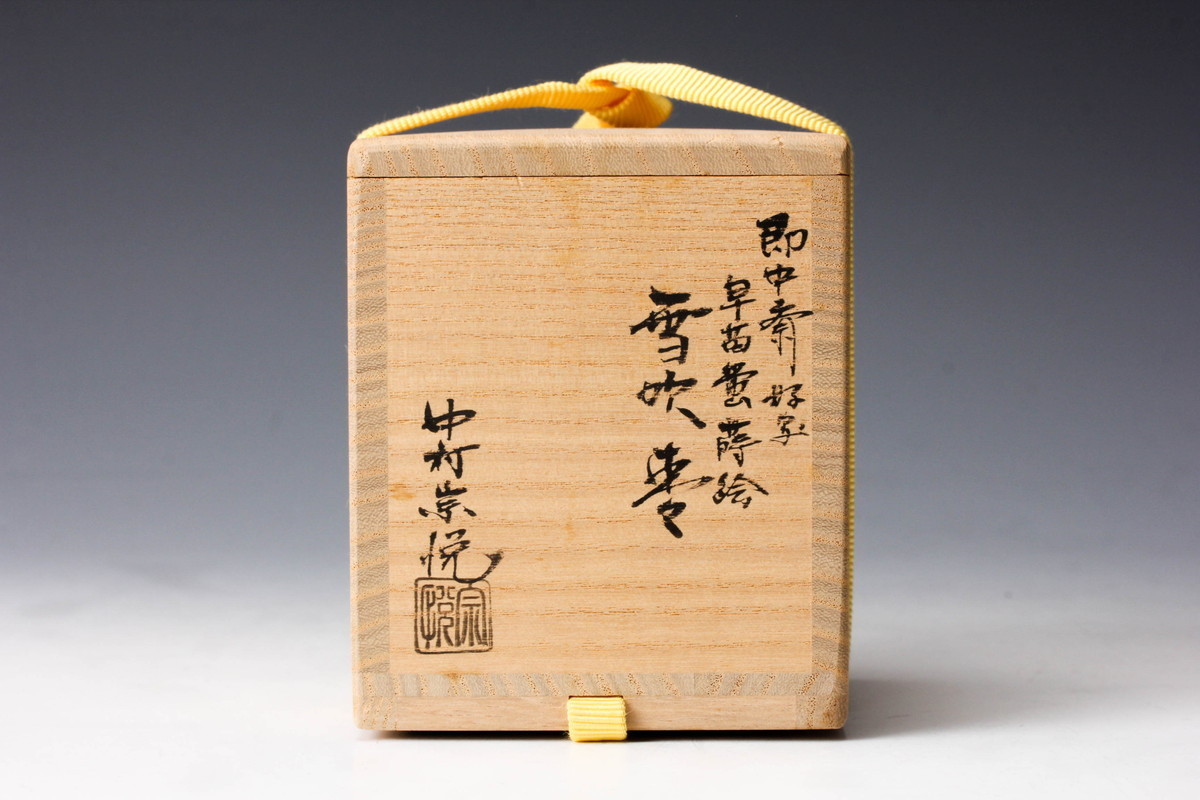 即中斎好写
早苗蛍蒔絵
雪吹棗
中村宗悦
宗悦